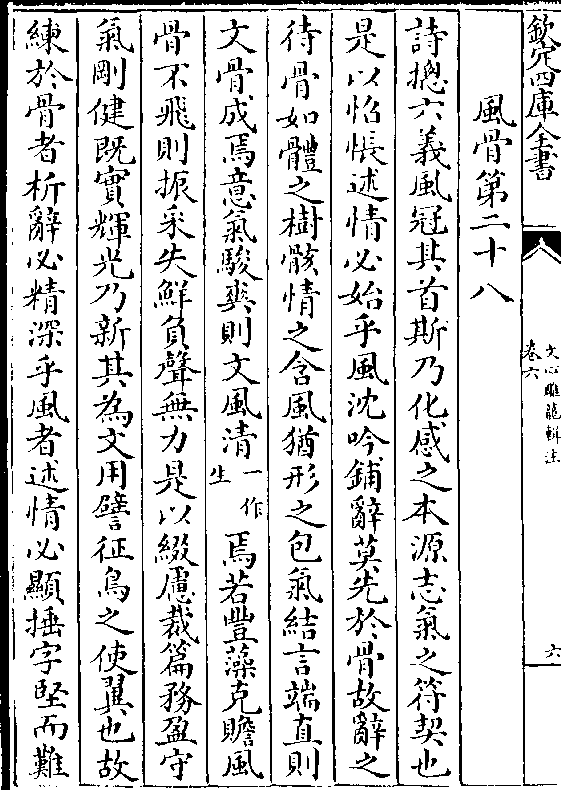 欽定四庫全書
文心雕龍輯注
卷六
六
風骨第二十八
詩摠六義風冠其首斯乃化感之本源志氣之符契也
是以怊悵述情必始乎風沈吟鋪辭莫先於骨故辭之
待骨如體之樹骸情之含風猶形之包氣結言端直則
文骨成焉意氣駿爽則文風清一作生焉若豐藻克贍風
骨不飛則振采失鮮負聲無力是以綴慮裁篇務盈守
氣剛健既實輝光乃新其為文用譬征鳥之使翼也故
練於骨者析辭必精深乎風者述情必顯捶字堅而難